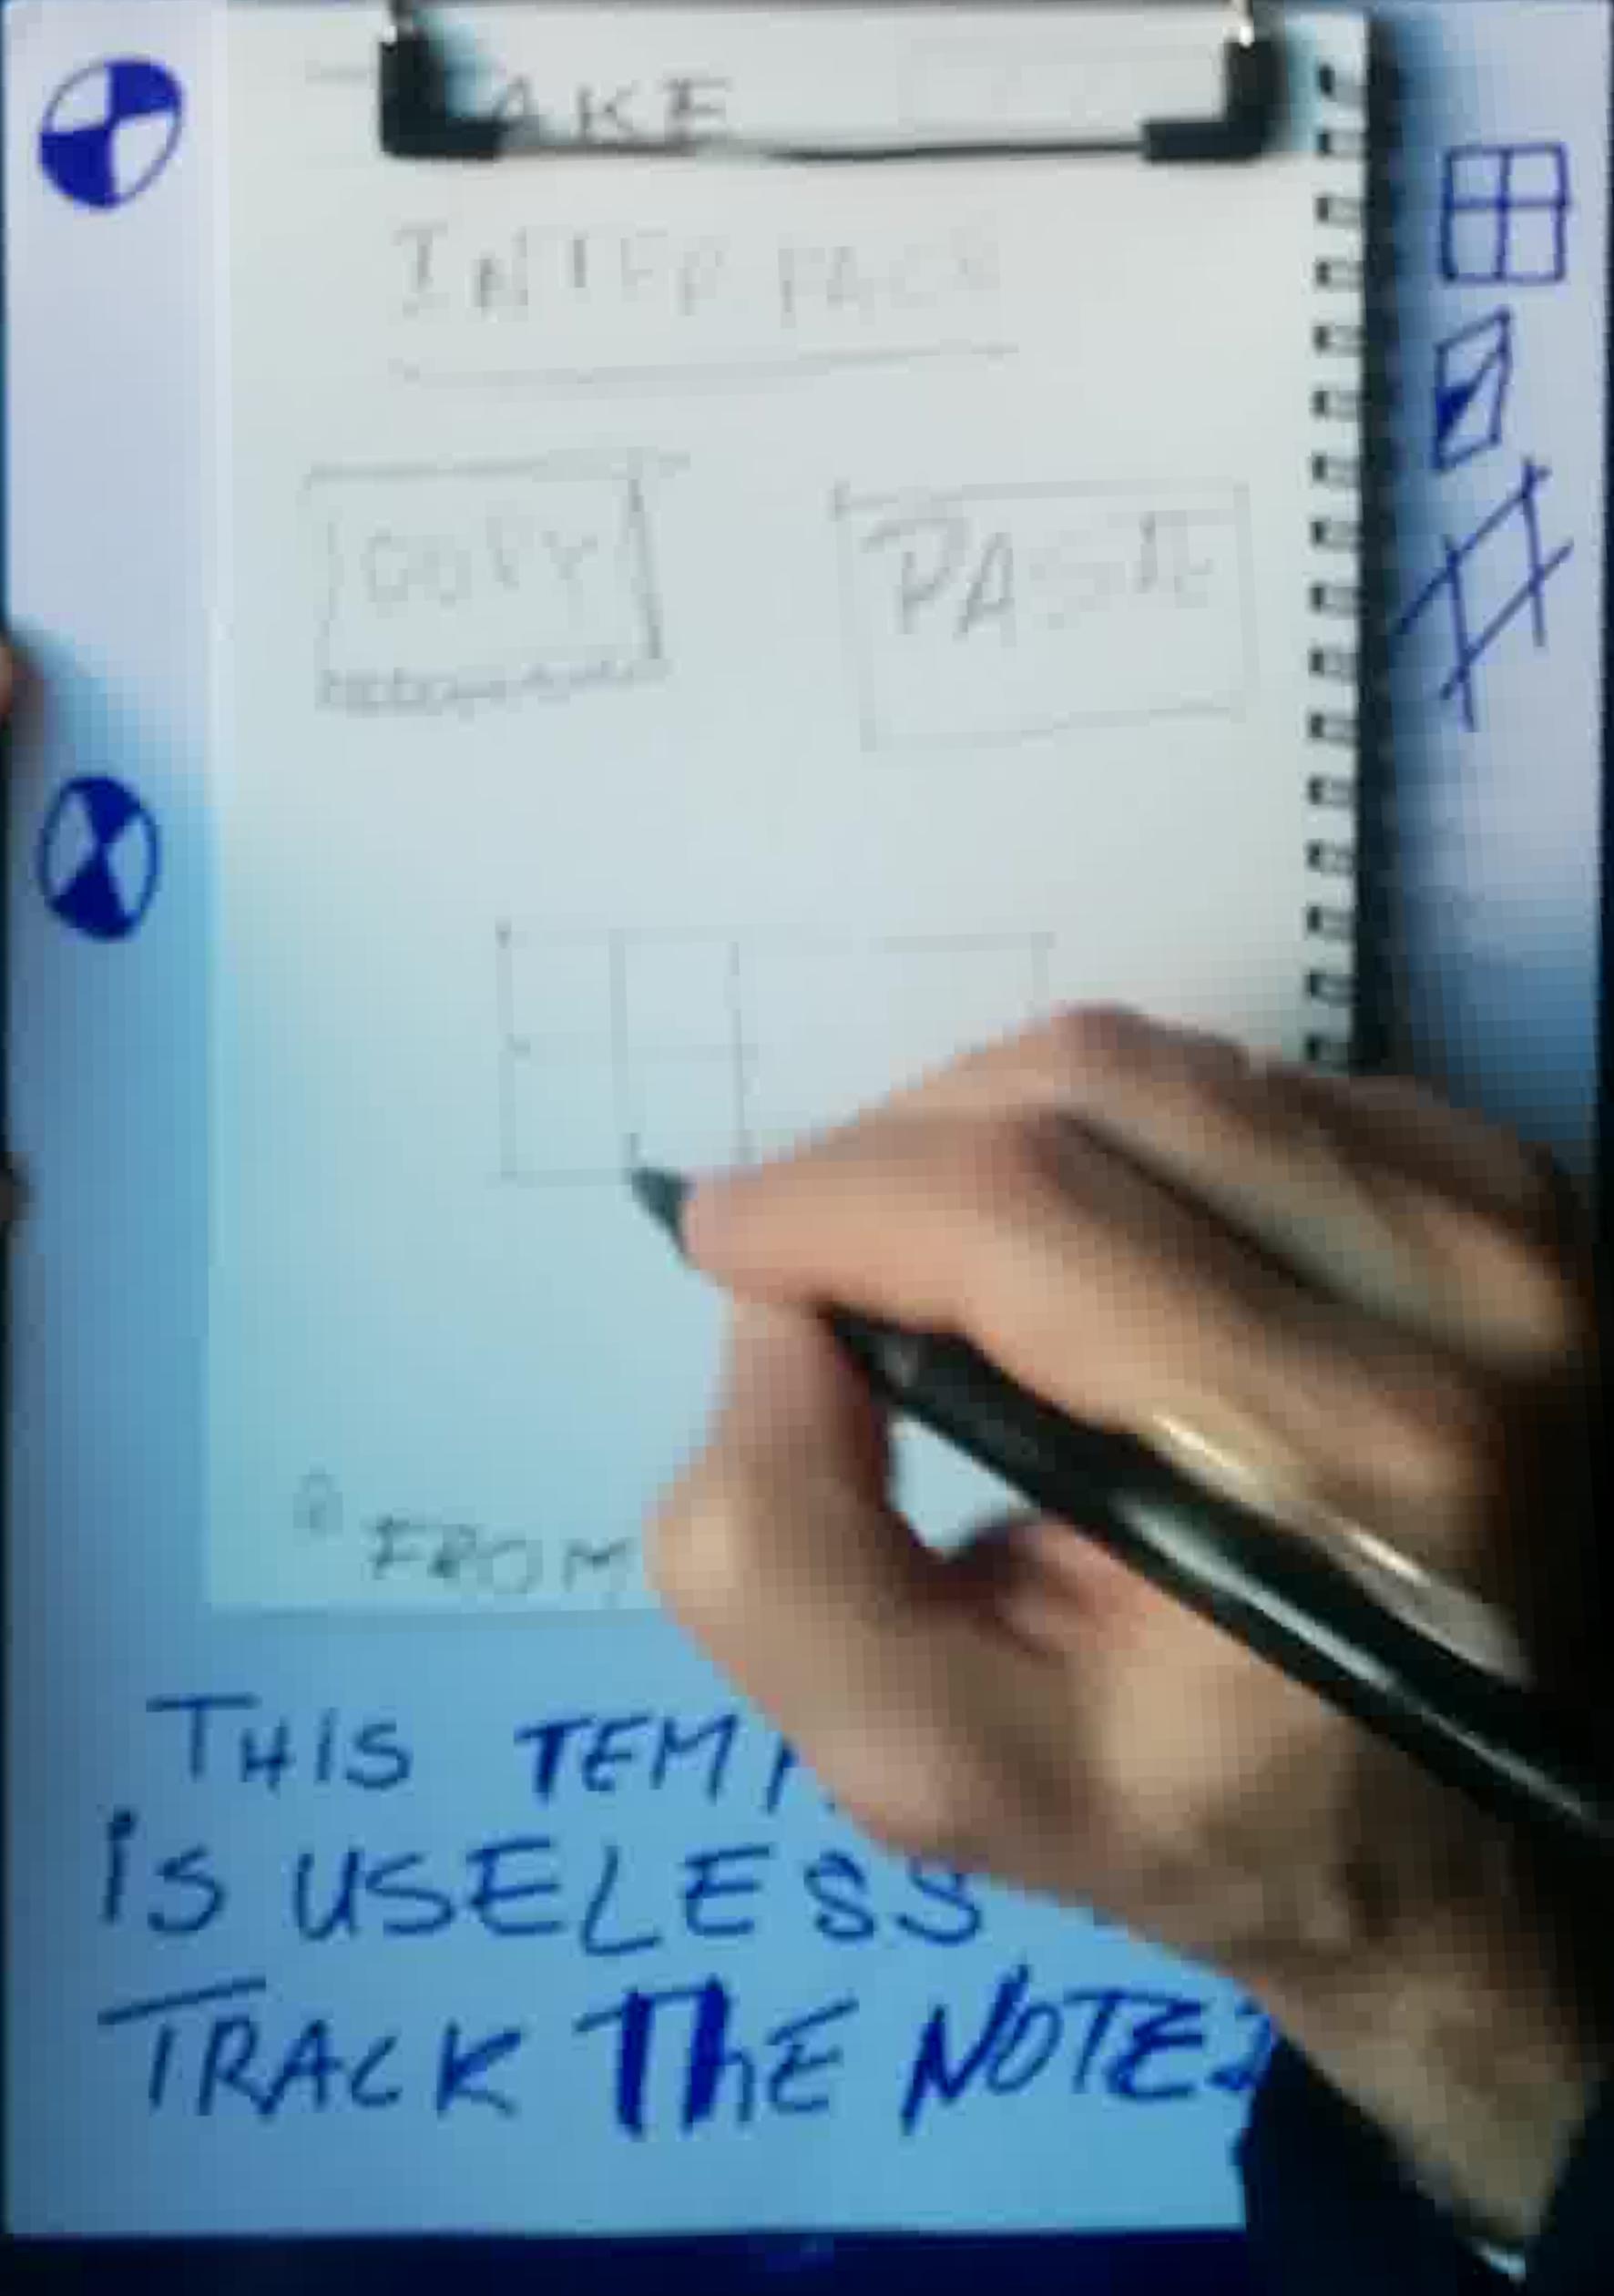 AKE
INTERFACE
COPY PASTE
FROM
THIS TEMP
iS USELESS
TRACK ThE NOTES